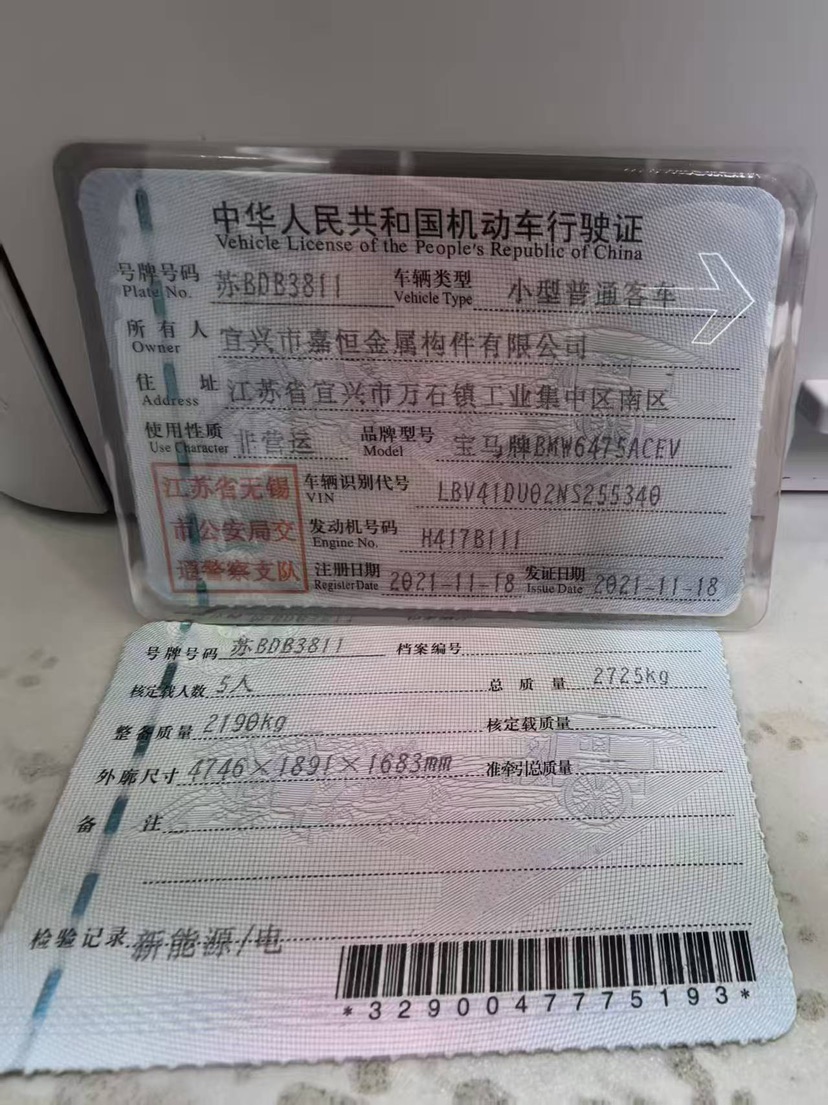 中华人民共和国机动车行驶证
Vehicle License of the People's Republic of China
号牌号码 苏BDB3811 车辆类型 小型普通客车
Plate No. Vehicle Type
所有人 宜兴市嘉恒金属构件有限公司
Owner
住址 江苏省宜兴市万石镇工业集中区南区
Address
使用性质 非营运 品牌型号 宝马牌BMW6475ACEV
Use Character Model
江苏省无锡
市公安局交
通警察支队
车辆识别代号 LBV41DU02NS255340
VIN
发动机号码 H417B111
Engine No.
注册日期 2021-11-18 发证日期 2021-11-18
Register Date Issue Date
号牌号码 苏BDB3811 档案编号
核定载人数 5人 总质量 2725kg
整备质量 2190kg 核定载质量
外廓尺寸 4746×1891×1683mm 准牵引总质量
备注
检验记录 新能源/电
*3290047775193*